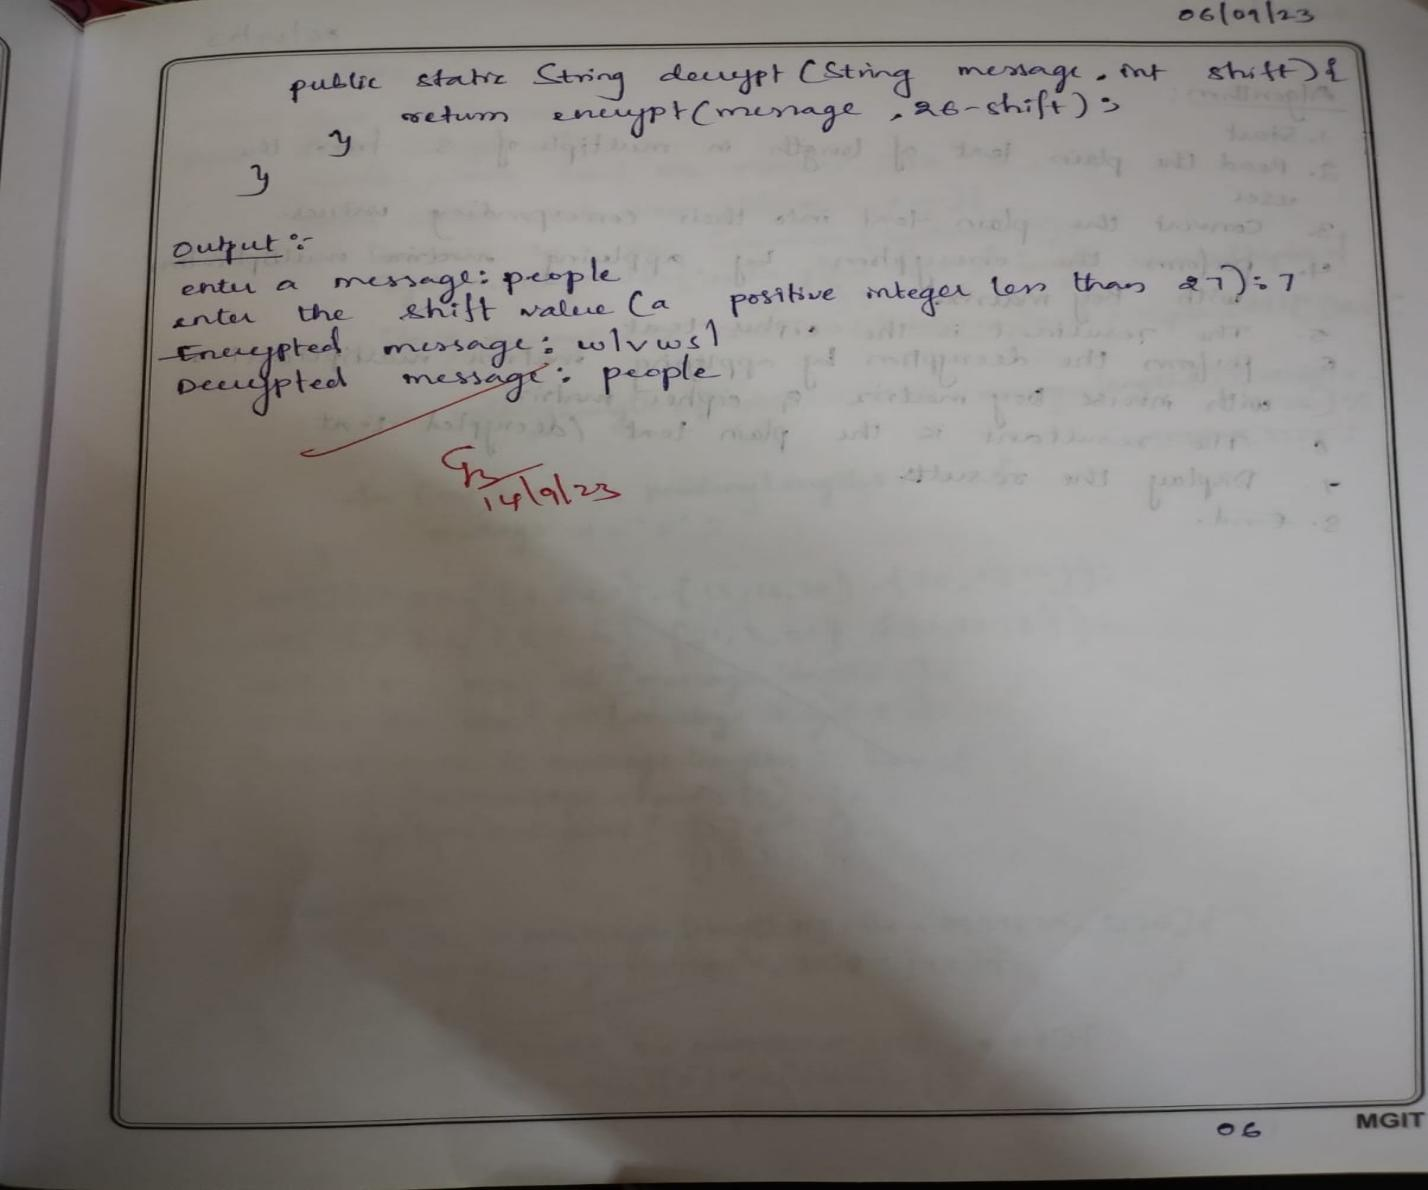 06/09/23
public static String decrypt (String message, int shift) {
return encrypt(message, 26-shift);
}
}
Output :-
enter a message: people
enter the shift value (a positive integer less than 27): 7
Encrypted message: wlvwsl
Decrypted message: people
14/9/23
06
MGIT